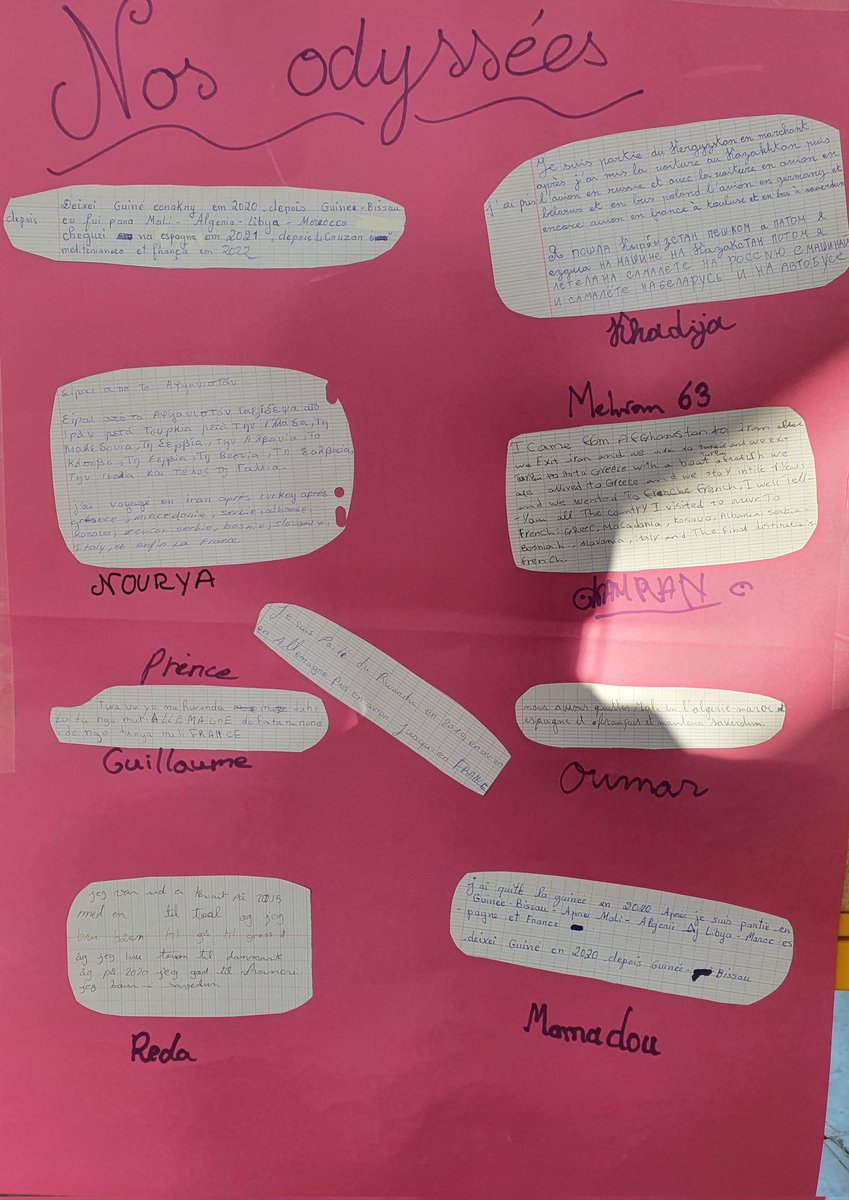 Nos odyssées
Deixei Guiné conakry em 2020 depois Guineé-Bissau
depois eu fui para Mali - Algenia - Libya - Morocco
cheguei na espagna em 2021, depois
mediteriannes et frança em 2022
Je suis partie du Kergyzstan en marchant
après j'ai mis la voiture au Kazakhtan puis
j'ai pris l'avion en russie et avec la voiture en avion en
bélarus et en bus poland l'avion en germany et
encore avion en france à toulouse et en bus à saverdun
Я пошла Кыргызстан пешком а патом я
ездиа на машине на Казакстан потом я
летела на самалете на РОССИЮ С МАШИНАЙ
И САМАЛЁТЕ НА БЕЛАРУСЬ И НА АВТОБУСЕ
Khadija
Είμαι από το Αφγανιστάν
Είμαι από το Αφγανιστάν ταξίδεψα από
Ιράν μετά Τουρκία μετά την Ελλάδα, τη
Μακεδονία, τη Σερβία, την Αλβανία, το
Κόσοβο, τη Σερβία, τη Βοσνία, τη Σολβενια,
την Ιταλία και τέλος τη Γαλλία.
j'ai voyagé en iran après turkey après
greece, macédonie, serbie, albanie,
kosovo, serbie, bosnie, slovani
Italy, et enfin La France.
NOURYA
Mehran 63
I Came from Afghanistan to iran after
we Exit iron and we to and we Exit
to Greece with a boat we
are arived to Greece and we stay
and we wanted To French, I well tell-
-You all The Country I visited to arive To
French: Greec, Macadonia, Kosovo, Albania serbia-
Bosniah, slovania, italy and The final destination is
french.
KAMRAN
Prince
Twavuye mu Burundi tuhi
mu ALLEMAGNE
tunga muli FRANCE
Guillaume
Je suis Partie du Rwanda en 2019 en avion
en Allemagne Puis en avion Jusqu'en FRANCE
nous avions quittés Mali en l'algerie maroc et
espagne et français et maintena saverdun.
Oumar
jeg var ud a kowait på 2015
med en til og jeg
til
åg jeg bru til danmark
åg på 2020 jeg god til
jeg i savedun
Reda
j'ai quitt la guinee en 2020 Aprei je suis partie en
Guinee-Bissau - Aprei Mali - Algenie Libya - Maroc - es
-pagne et France
deixei Guiné en 2020 depois Guineé- Bissau
Mamadou